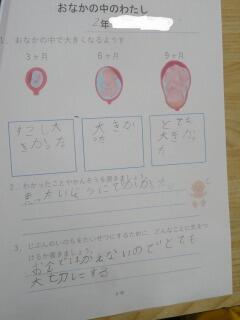 おなかの中のわたし
2年
1. おなかの中で大きくなるようす
3ヶ月 6ヶ月 9ヶ月
すこし大きかった
大きかった
とても大きかった
2. わかったことやかんそうを書きましょう。
3. じぶんのいのちをたいせつにするために、どんなことに気をつ
けるか書きましょう。
お金ではかえないのでとても
大切にする